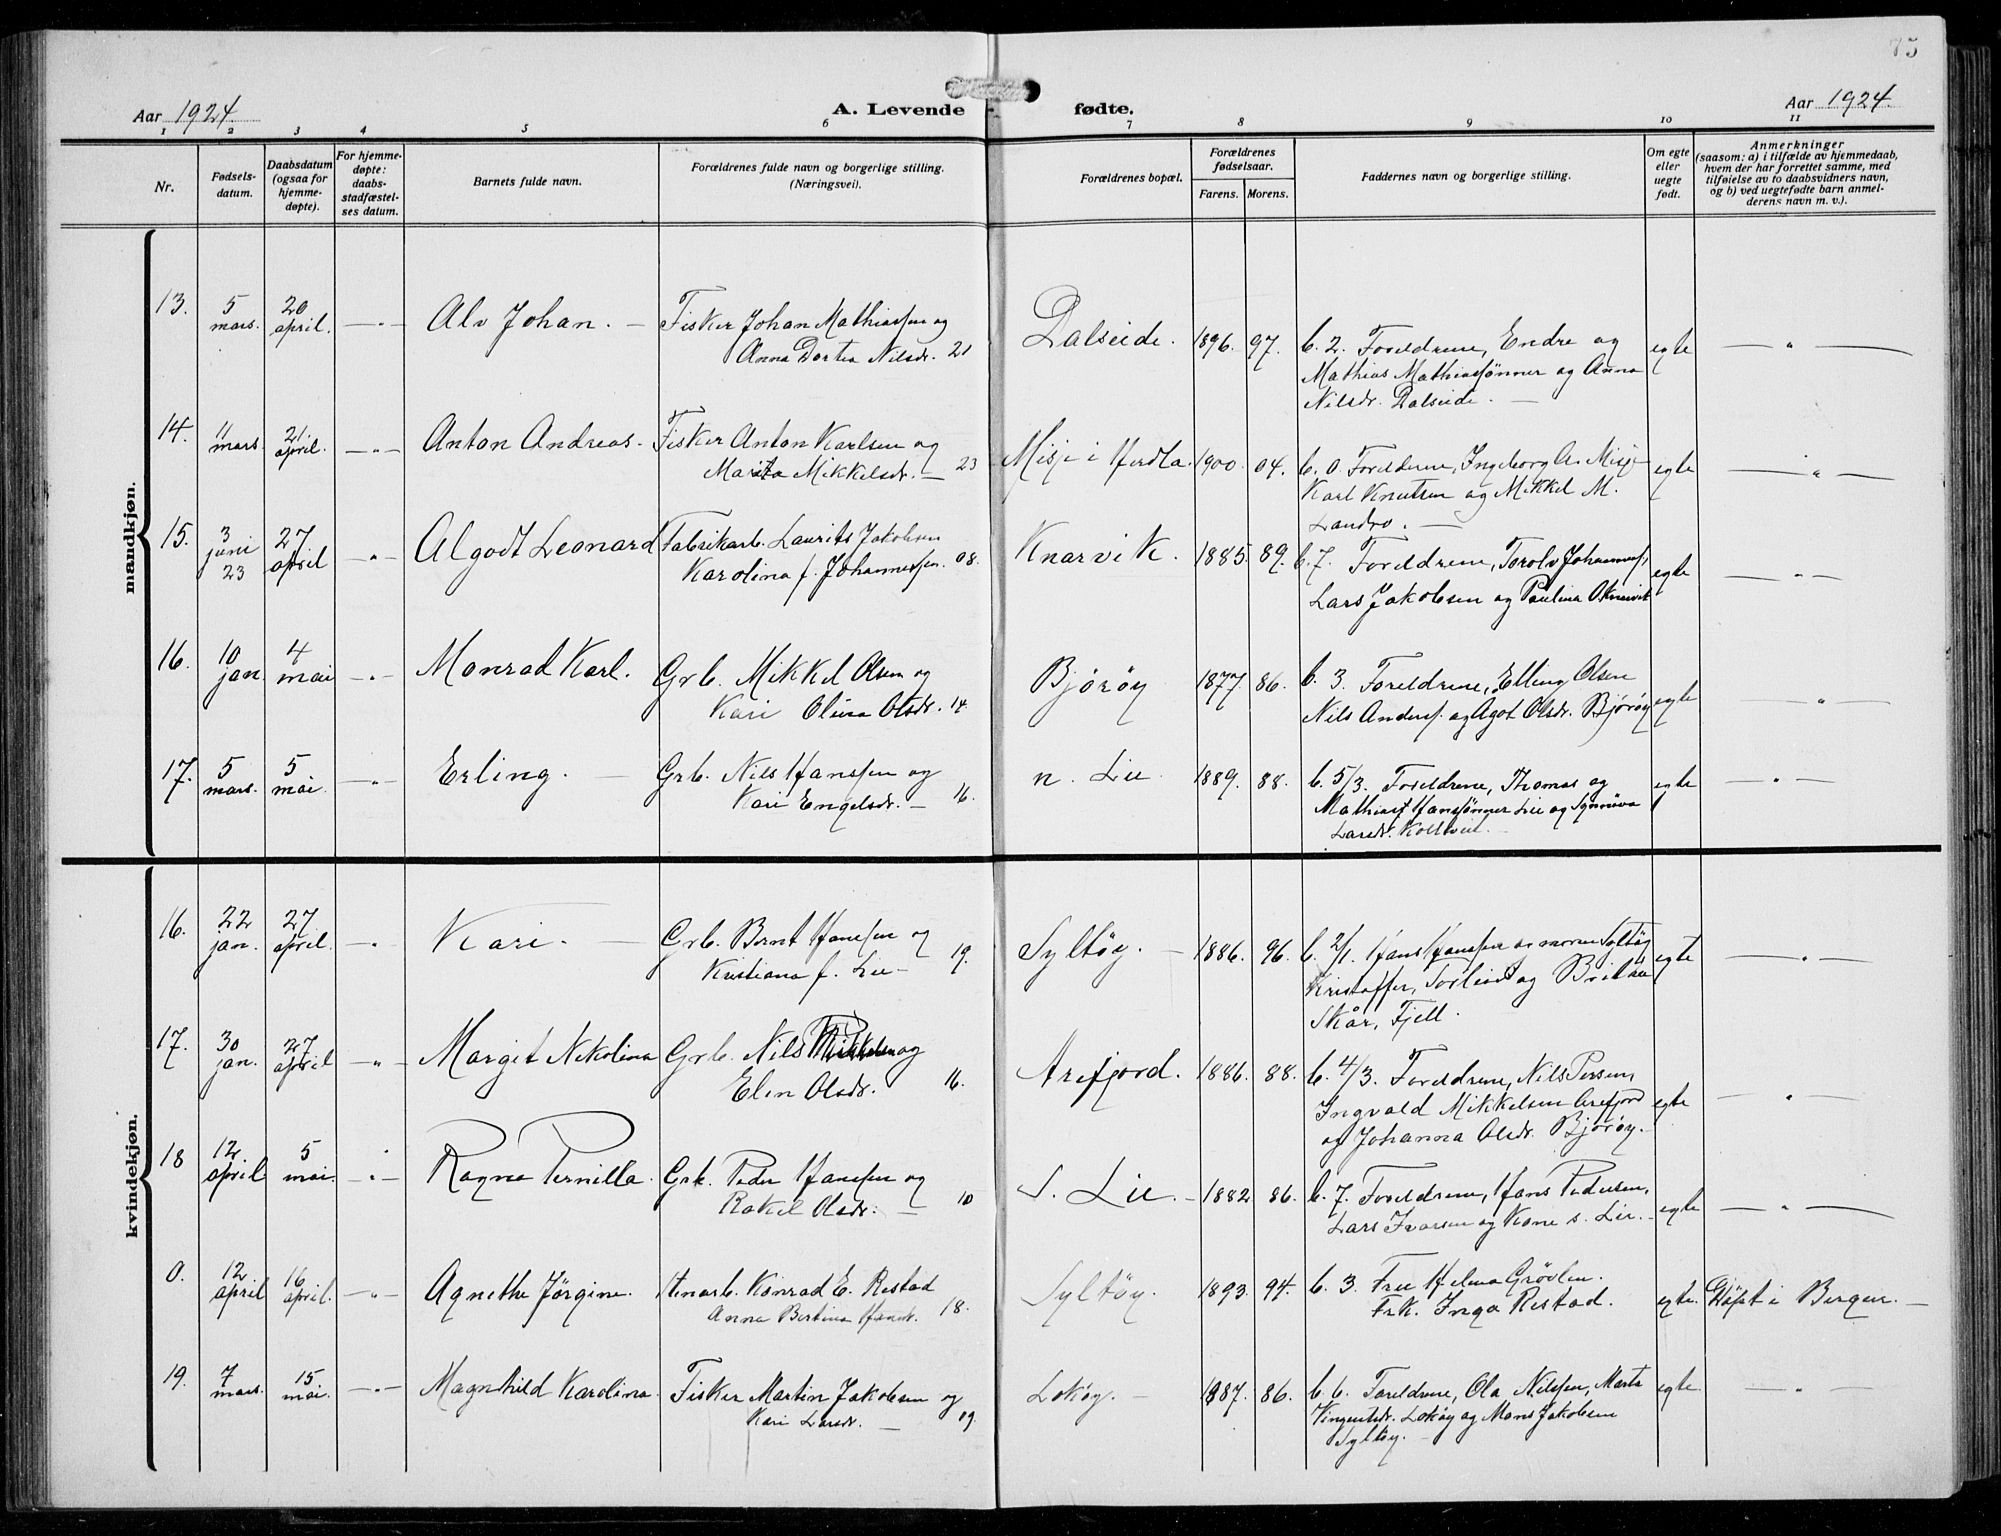 75
Aar 1924.
A. Levende fødte.
Aar 1924.
1 2 3 4 5 6 7 8 9 10 11
Nr.
Fødsels-
datum.
Daabsdatum
(ogsaa for
hjemme-
døpte).
For hjemme-
døpte:
daabs-
stadfæstel-
ses datum.
Barnets fulde navn.
Forældrenes fulde navn og borgerlige stilling.
(Næringsvei).
Forældrenes bopæl.
Forældrenes
fødselsaar.
Farens. Morens.
Faddernes navn og borgerlige stilling.
Om egte
eller
uegte
født.
Anmerkninger
(saasom: a) i tilfælde av hjemmedaab,
hvem der har forrettet samme, med
tilføielse av to daabsvidners navn,
og b) ved uegtefødte barn anmel-
derens navn m. v.).
mandkjøn.
13. 5 mars. 20 april. — " — Alv Johan. — Fisker Johan Mathiassen og
Anna Dortea Nilsdr. 21
Dalseide. 1896. 97. b. 2. Foreldrene, Endre og
Mathias Mathiassønner og Anna
Nilsdr. Dalseide. —
egte — " —
14. 11 mars 21 april. — " — Anton Andreas. Fisker Anton Karlsen og
Marta Mikkelsdr. — 23
Misje i Herdla. 1900. 04. b. 0. Foreldrene, Ingeborg A. Misje
Karl Knutsen og Mikkel M.
Landro. —
egte — " —
15. 3 juni 23 27 april — " — Algodt Leonard Fabrikarb. Laurits Jakobsen
Karolina f. Johannessen. 08.
Knarvik. 1885. 89. b. 7. Foreldrene, Torolv Johanness.,
Lars Jakobsen og Paulina O. Knarvik
egte — " —
16. 10 jan. 4 mai — " — Monrad Karl. Grb. Mikkel Olsen og
Kari Olina Olsdr. 14.
Bjørøy 1877. 86. b. 3. Foreldrene, Elling Olsen
Nils Anders. og Agot Olsdr. Bjørøy
egte — " —
17. 5 mars. 5 mai. — " — Erling. — Grb. Nils Hanssen og
Kari Engelsdr. — 16.
n. Lie. 1889. 88. b. 5/3. Foreldrene, Thomas og
Mathias Hanssønner Lie og Synnøva
Larsdr. Koltveit. —
egte — " —
kvindekjøn.
16. 22 jan. 27 april. — " — Kari. — Grb. Bernt Hanssen og
Kristiana f. Lie — 19.
Syltøy. — 1886. 96. b. 2/1. Hans Hanssen og moren Syltøy
Kristoffer, Torleiv og Brita
Skår, Fjell.
egte — " —
17. 30 jan. 27 april — " — Margit Nikolina Grb. Nils og
Elen Olsdr. 16.
Arefjord. 1886. 88. b. 4/3. Foreldrene, Nils Persen,
Ingvald Mikkelsen Arefjord
og Johanna Olsdr. Bjørøy.
egte — " —
18 12 april. 5 mai. — " — Ragna Pernilla. Grb. Peder Hanssen og
Rakel Olsdr. — 10
S. Lie. — 1882 86. b. 7. Foreldrene, Hans Pedersen,
Lars Ivarsen og Kone s. Lie. —
egte — " —
0. 12 april 16 april. — " — Agnethe Jørgine. Stenarb. Konrad E. Restad
Anna Bertina Hansdr. 18.
Syltøy. 1893. 94. b. 3. Fru Helena Grøvlen.
Frk. Inga Restad.
egte. Døpt i Bergen. —
19. 7 mars. 15 mai. — " — Magnhild Karolina. Fisker Martin Jakobsen og
Kari Larsdr. — 09.
Lokøy. — 1887. 86. b. 6. Foreldrene, Ola Nilssen, Marta
Vingentsdr. Lokøy og Mons Jakobsen
Syltøy. —
egte. — " —